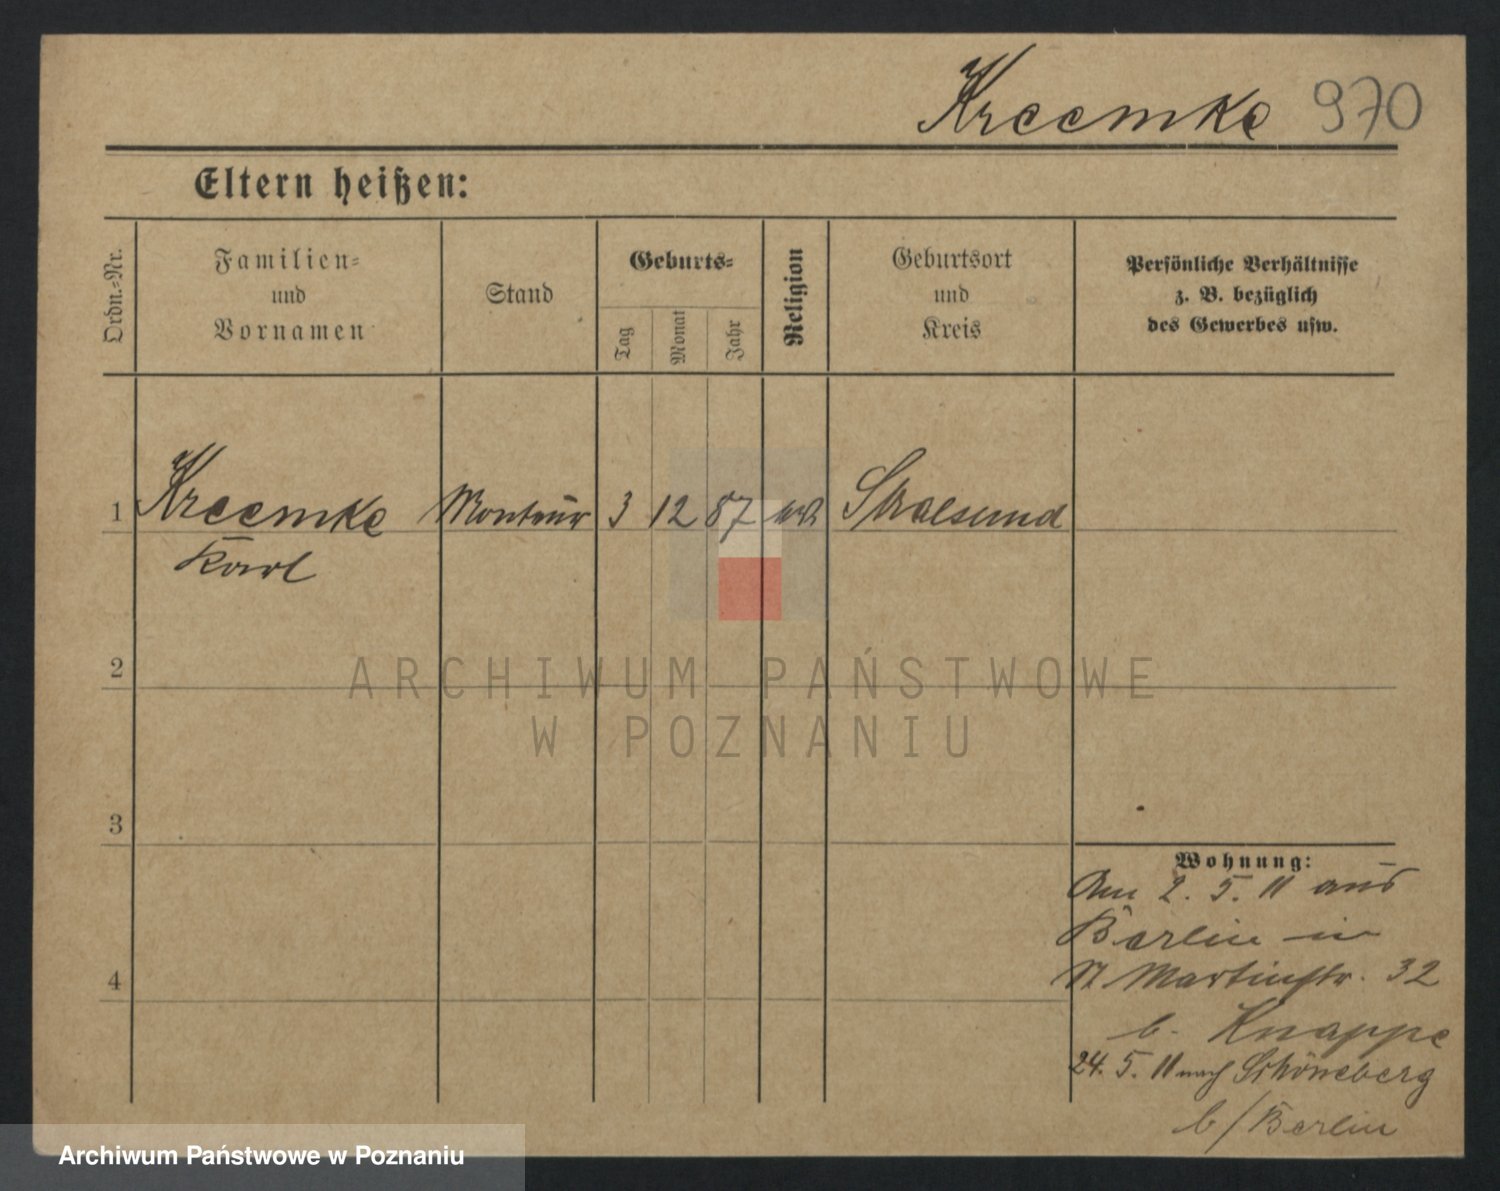 Kreemke 970
Eltern heißen:
Ordn.-Nr.
Familien-
und
Vornamen
Stand
Geburts-
Tag
Monat
Jahr
Religion
Geburtsort
und
Kreis
Persönliche Verhältnisse
z. B. bezüglich
des Gewerbes usw.
1 Kreemke Monteur 3 12 87 Stralsund
Karl
2
3
4
Wohnung:
Am 2. 5. 11 aus
Berlin in
St Martinstr. 32
b. Knappe
24. 5. 11 nach Schöneberg
b/Berlin
ARCHIWUM PAŃSTWOWE
W POZNANIU
Archiwum Państwowe w Poznaniu